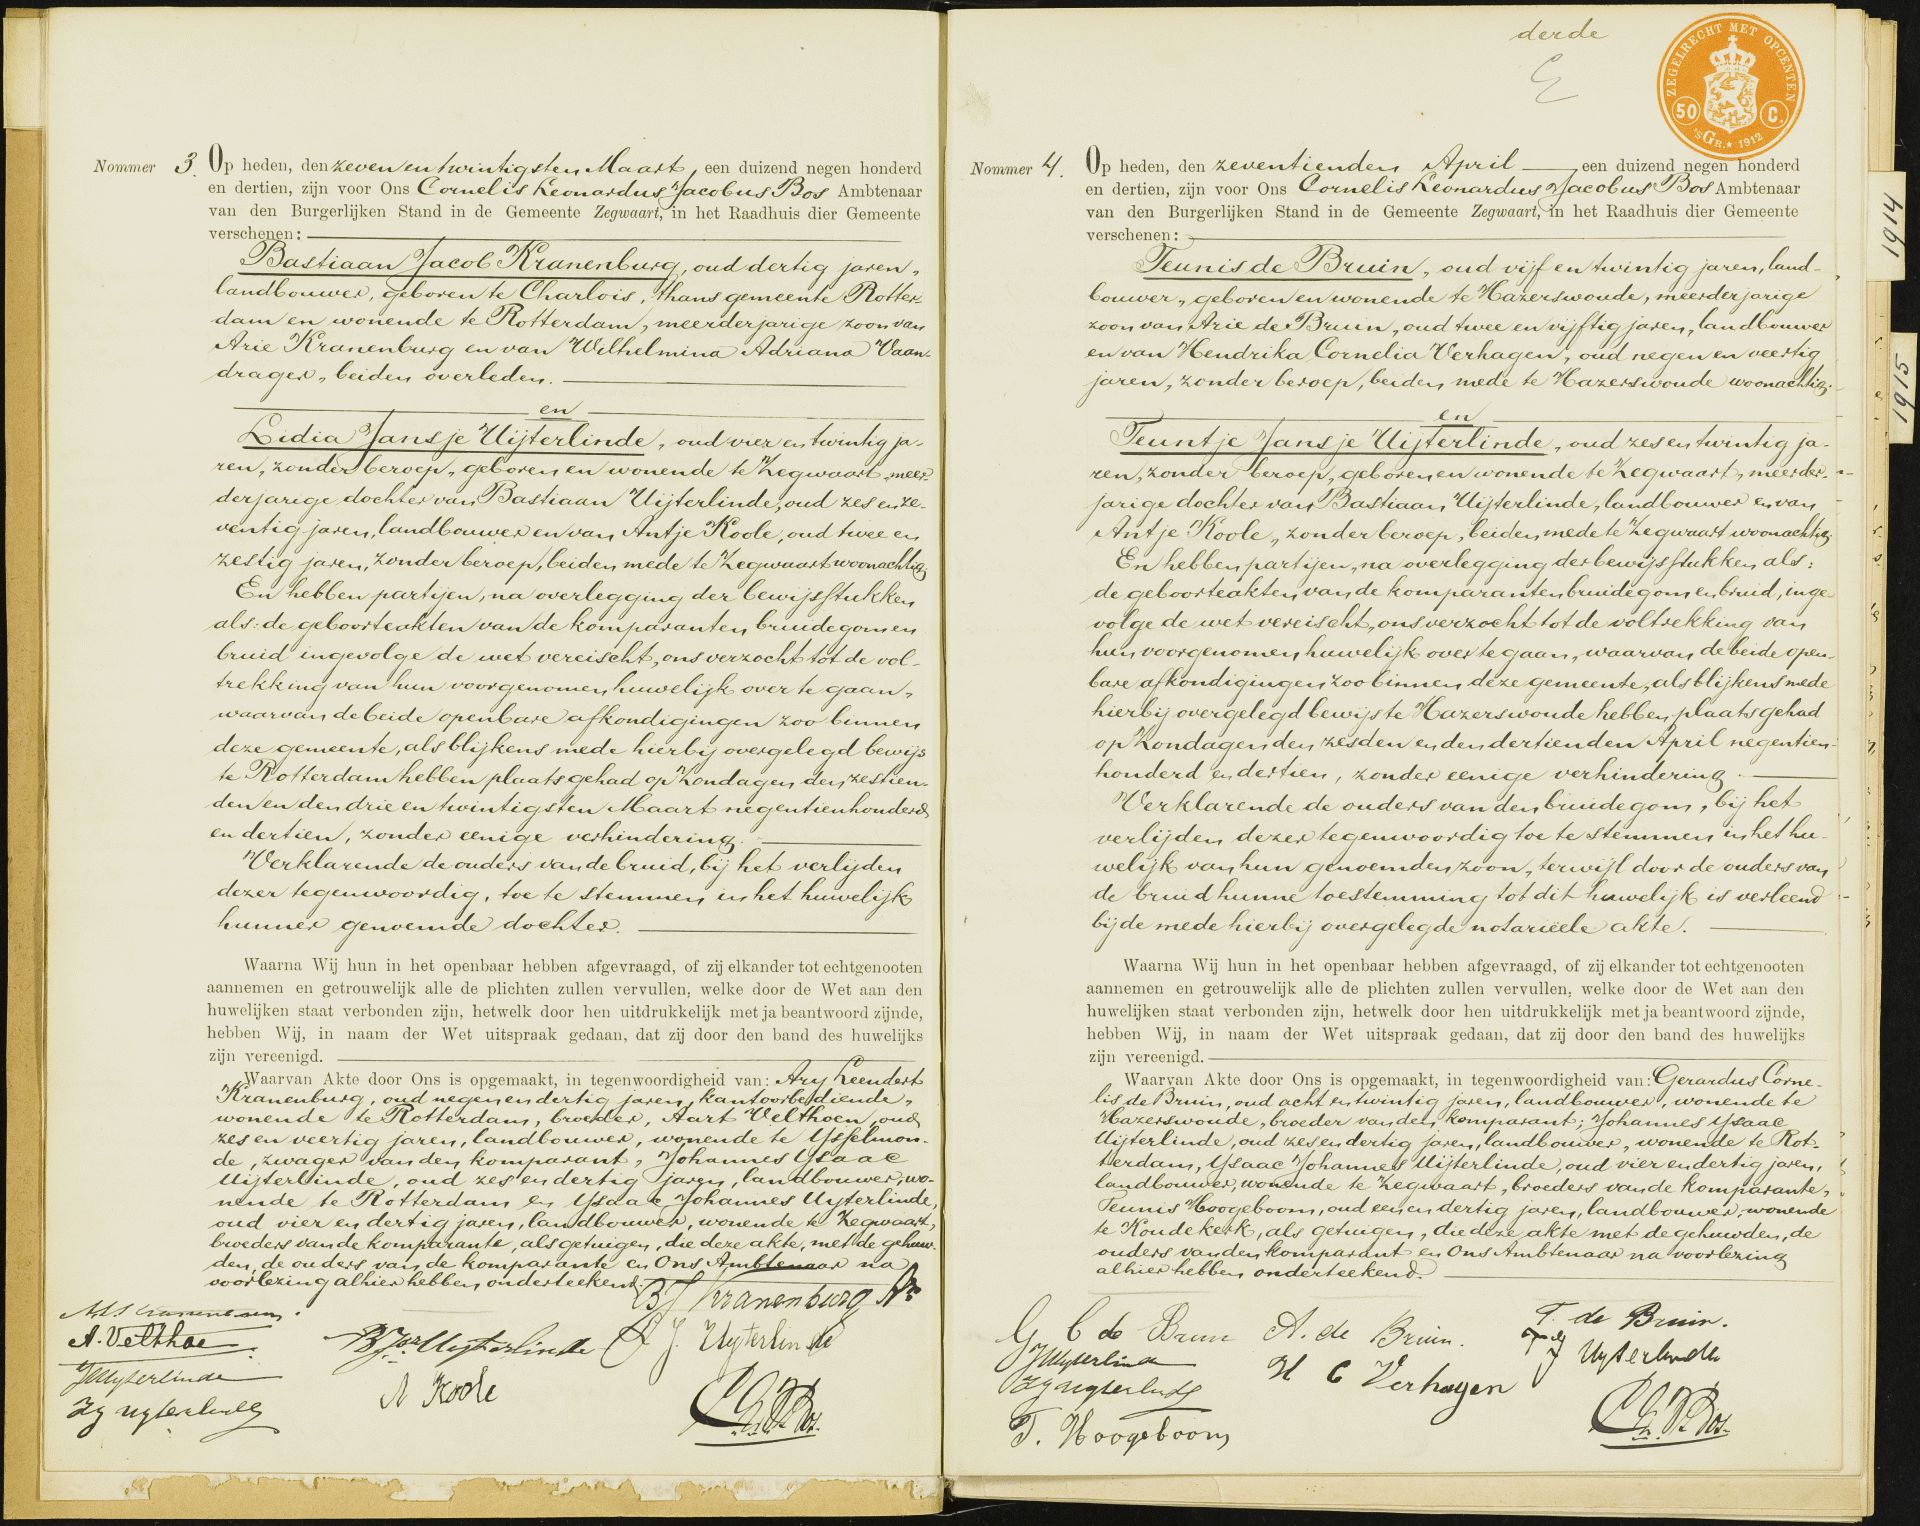 Nommer 3. Op heden, den zeven en twintigsten Maart, een duizend negen honderd
en dertien, zijn voor Ons Cornelis Leonardus Jacobus Bos Ambtenaar
van den Burgerlijken Stand in de Gemeente Zegwaart, in het Raadhuis dier Gemeente
verschenen:
Bastiaan Jacob Kranenburg, oud dertig jaren,
landbouwer, geboren te Charlois, thans gemeente Rotter-
dam en wonende te Rotterdam, meerderjarige zoon van
Arie Kranenburg en van Wilhelmina Adriana Vaan-
drager, beiden overleden.
en
Lidia Jansje Uijterlinde, oud vier en twintig ja-
ren, zonder beroep, geboren en wonende te Zegwaart, meer-
derjarige dochter van Bastiaan Uijterlinde, oud zes en ze-
ventig jaren, landbouwer en van Antje Koole, oud twee en
zestig jaren, zonder beroep, beiden mede te Zegwaart woonachtig.
En hebben partijen, na overlegging der bewijsstukken
als: de geboorteakten van de komparanten bruidegom en
bruid ingevolge de wet vereischt, ons verzocht tot de vol-
trekking van hun voorgenomen huwelijk over te gaan,
waarvan de beide openbare afkondigingen zoo binnen
deze gemeente, als blijkens mede hierbij overgelegd bewijs
te Rotterdam hebben plaats gehad op Zondagen den zestien-
den en den drie en twintigsten Maart negentienhonderd
en dertien, zonder eenige verhindering.
Verklarende de ouders van de bruid, bij het verlijden
dezer tegenwoordig, toe te stemmen in het huwelijk
hunner genoemde dochter.
Waarna Wij hun in het openbaar hebben afgevraagd, of zij elkander tot echtgenooten
aannemen en getrouwelijk alle de plichten zullen vervullen, welke door de Wet aan den
huwelijken staat verbonden zijn, hetwelk door hen uitdrukkelijk met ja beantwoord zijnde,
hebben Wij, in naam der Wet uitspraak gedaan, dat zij door den band des huwelijks
zijn vereenigd.
Waarvan Akte door Ons is opgemaakt, in tegenwoordigheid van: Ary Leendert
Kranenburg, oud negen en dertig jaren, kantoorbediende,
wonende te Rotterdam, broeder, Aart Velthoen, oud
zes en veertig jaren, landbouwer, wonende te Ysselmon-
de, zwager van den komparant, Johannes Ysaac
Uijterlinde, oud zes en dertig jaren, landbouwer, wo-
nende te Rotterdam en Ysaac Johannes Uijterlinde,
oud vier en dertig jaren, landbouwer, wonende te Zegwaart,
broeders van de komparante, als getuigen, die deze akte, met de gehuw-
den, de ouders van de komparante en Ons Ambtenaar na
voorlezing alhier hebben onderteekend.
BJ Kranenburg Az
A. Velthoe
L J. Uyterlinde
JUyterlinde
A Koole
CLJBos.
derde
ZEGELRECHT MET OPCENTEN
50 C.
'sGR. * 1912
Nommer 4. Op heden, den zeventienden April een duizend negen honderd
en dertien, zijn voor Ons Cornelis Leonardus Jacobus Bos Ambtenaar
van den Burgerlijken Stand in de Gemeente Zegwaart, in het Raadhuis dier Gemeente
verschenen:
Teunis de Bruin, oud vijf en twintig jaren, land-
bouwer, geboren en wonende te Hazerswoude, meerderjarige
zoon van Arie de Bruin, oud twee en vijftig jaren, landbouwer
en van Hendrika Cornelia Verhagen, oud negen en veertig
jaren, zonder beroep, beiden mede te Hazerswoude woonachtig.
en
Teuntje Jansje Uijterlinde, oud zes en twintig ja-
ren, zonder beroep, geboren en wonende te Zegwaart, meerder-
jarige dochter van Bastiaan Uijterlinde, landbouwer en van
Antje Koole, zonder beroep, beiden mede te Zegwaart woonachtig.
En hebben partijen, na overlegging der bewijsstukken, als:
de geboorteakten van de komparanten bruidegom en bruid, inge-
volge de wet vereischt, ons verzocht tot de voltrekking van
hun voorgenomen huwelijk over te gaan, waarvan de beide open-
bare afkondigingen zoo binnen deze gemeente, als blijkens mede
hierbij overgelegd bewijs te Hazerswoude hebben plaats gehad
op Zondagen den zesden en den dertienden April negentien-
honderd en dertien, zonder eenige verhindering.
Verklarende de ouders van den bruidegom, bij het
verlijden dezer tegenwoordig toe te stemmen in het hu-
welijk van hun genoemden zoon, terwijl door de ouders van
de bruid hunne toestemming tot dit huwelijk is verleend
bij de mede hierbij overgelegde notarieële akte.
Waarna Wij hun in het openbaar hebben afgevraagd, of zij elkander tot echtgenooten
aannemen en getrouwelijk alle de plichten zullen vervullen, welke door de Wet aan den
huwelijken staat verbonden zijn, hetwelk door hen uitdrukkelijk met ja beantwoord zijnde,
hebben Wij, in naam der Wet uitspraak gedaan, dat zij door den band des huwelijks
zijn vereenigd.
Waarvan Akte door Ons is opgemaakt, in tegenwoordigheid van: Gerardus Corne-
lis de Bruin, oud acht en twintig jaren, landbouwer, wonende te
Hazerswoude, broeder van den komparant; Johannes Ysaac
Uijterlinde, oud zes en dertig jaren, landbouwer, wonende te Rot-
terdam, Ysaac Johannes Uijterlinde, oud vier en dertig jaren,
landbouwer, wonende te Zegwaart, broeders van de komparante,
Teunis Hoogeboom, oud een en dertig jaren, landbouwer, wonende
te Koudekerk, als getuigen, die deze akte met de gehuwden, de
ouders van den komparant en Ons Ambtenaar na voorlezing
alhier hebben onderteekend.
G C de Bruin A. de Bruin. T. de Bruin.
JUyterlinde H C Verhagen T J Uyterlinde
T. Hoogeboom CLJBos.
1914
1915